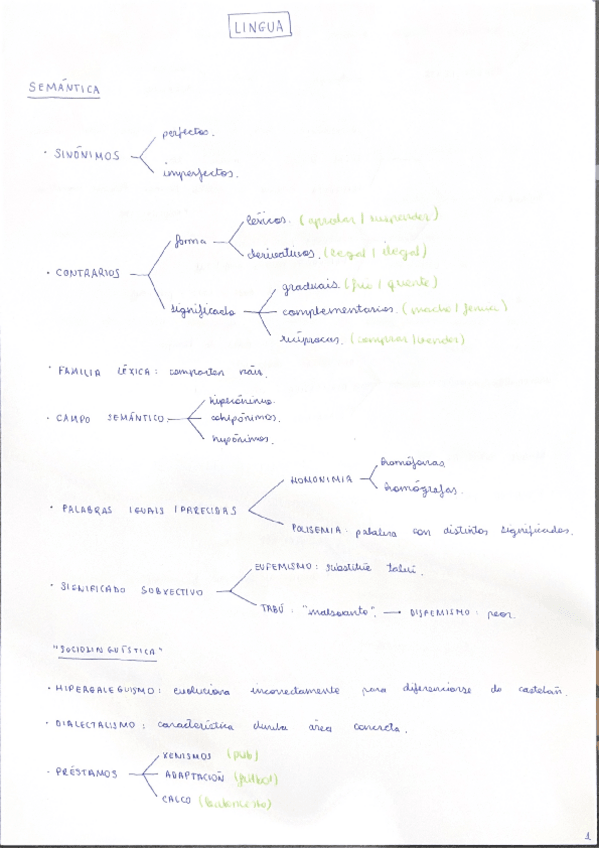 LINGUA
SEMÁNTICA
· SINÓNIMOS
perfectos.
imperfectos.
· CONTRARIOS
forma
léxicos. (aprobar / suspender)
derivativos. (legal / ilegal)
significado
graduais. (frío / quente)
complementarios. (macho / femia)
recíprocos. (comprar / vender)
· FAMILIA LÉXICA: comparten raíz.
· CAMPO SEMÁNTICO
hiperónimo.
cohipónimos.
hipónimos.
· PALABRAS IGUAIS / PARECIDAS
HOMONIMIA
homófonas
homógrafas.
POLISEMIA: palabra con distintos significados.
· SIGNIFICADO SUBXECTIVO
EUFEMISMO: substitúe tabú.
TABÚ: "malsoante". → DISFEMISMO: peor.
"SOCIOLINGÜÍSTICA"
· HIPERGALEGUISMO: evoluciona incorrectamente para diferenciarse do castelán.
· DIALECTALISMO: característica dunha área concreta.
· PRÉSTAMOS
XENISMOS (pub)
ADAPTACIÓN (fútbol)
CALCO (baloncesto)
1